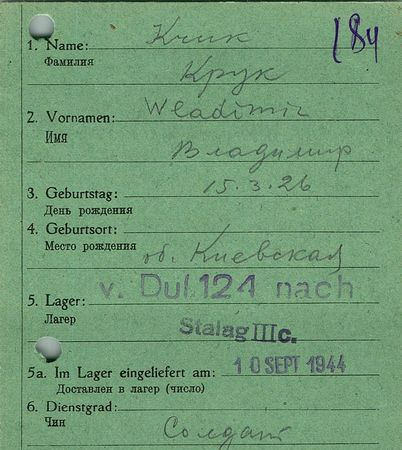 184
1. Name: Kruk
Фамилия
Крук
2. Vornamen: Wladimir
Имя
Владимир
3. Geburtstag: 15.3.26
День рождения
4. Geburtsort:
Место рождения
об. Киевская
v. Dul. 124 nach
5. Lager:
Лагер
Stalag III c.
5a. Im Lager eingeliefert am: 10 SEPT 1944
Доставлен в лагер (число)
6. Dienstgrad:
Чин
Солдат